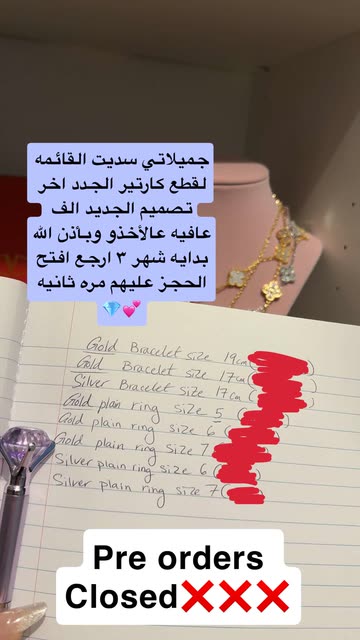 جميلاتي سديت القائمه
لقطع كارتير الجدد اخر
تصميم الجديد الف
عافيه عالأخذو وبأذن الله
بدايه شهر ٣ ارجع افتح
الحجز عليهم مره ثانيه
💎💕
Gold Bracelet size 19cm (
Gold Bracelet size 17cm (
Silver Bracelet size 17cm (
Gold plain ring size 5 (
Gold plain ring size 6 (
Gold plain ring size 7 (
Silver plain ring size 6 (
Silver plain ring size 7 (
Pre orders
Closed❌❌❌